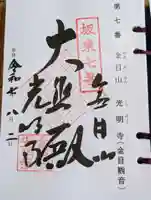 第七番 金目山 光明寺(金目観音)
坂東七番
奉拝
金目山
大悲殿
光明寺
令和七年八月二日